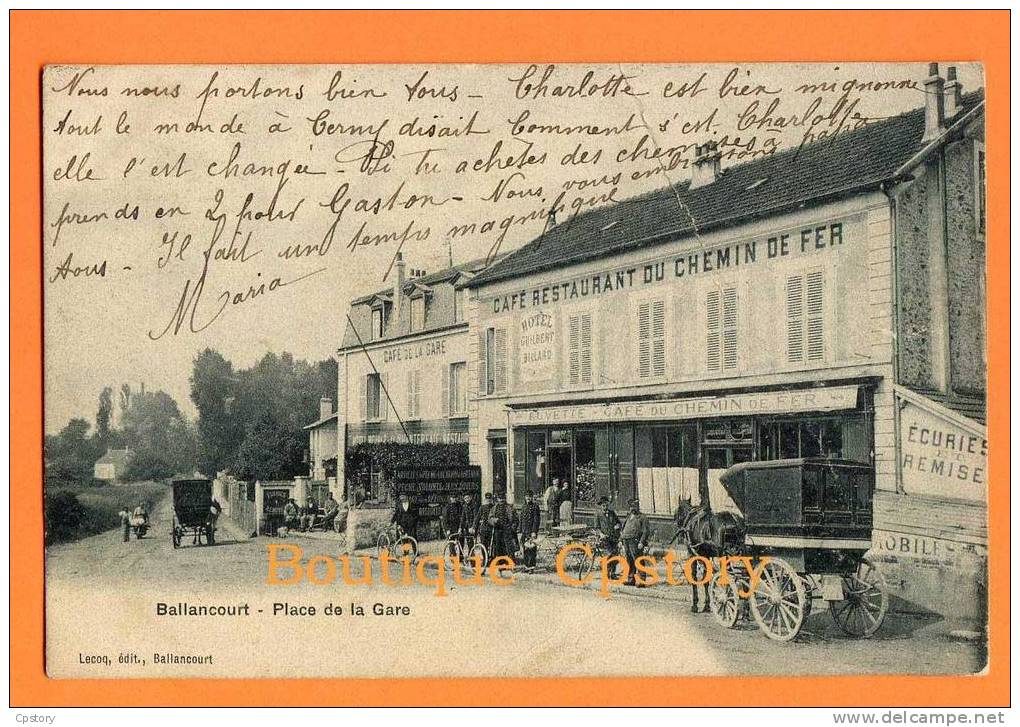 Nous nous portons bien tous - Charlotte est bien mignonne
tout le monde à Cerny disait Comment s'est Charlotte
elle s'est changée - Si tu achètes des chemises à papa
prends en 2 pour Gaston - Nous vous embrassons
tous - Il fait un temps magnifique
Maria
CAFÉ RESTAURANT DU CHEMIN DE FER
HOTEL
GUILBERT
BILLARD
CAFÉ DE LA GARE
BUVETTE - CAFÉ DU CHEMIN DE FER
ÉCURIES
ET
REMISE
MOBILES
Boutique Cpstory
Ballancourt - Place de la Gare
Lecoq, édit., Ballancourt
Cpstory
http://www.delcampe.net